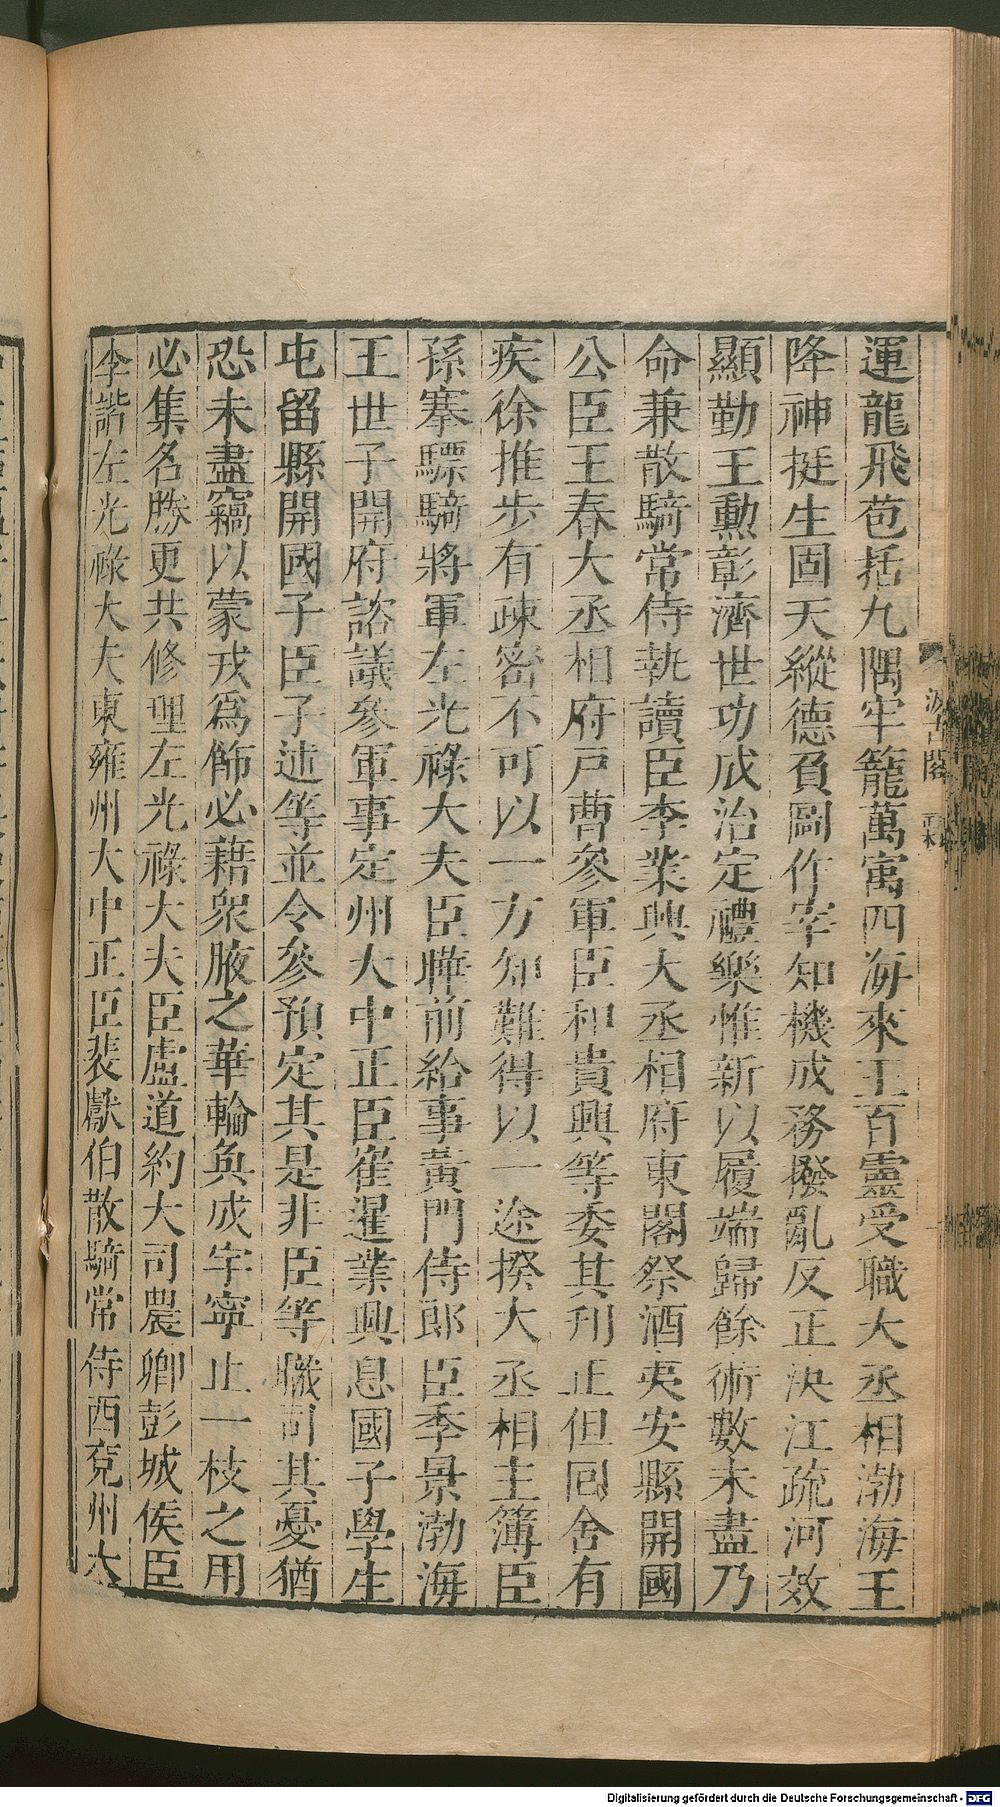 運龍飛苞括九隅牢籠萬寓四海來王百靈受職大丞相渤海王
降神挺生固天縱德負圖作宰知機成務撥亂反正決江疏河效
顯勤王勳彰濟世功成治定禮樂惟新以履端歸餘術數未盡乃
命兼散騎常侍執讀臣李業興大丞相府東閣祭酒夷安縣開國
公臣王春大丞相府戸曹參軍臣和貴興等委其刋正但回舍有
疾徐推步有疎密不可以一方知難得以一途揆大丞相主簿臣
孫搴驃騎將軍左光祿大夫臣䏿前給事黃門侍郎臣季景渤海
王世子開府諮議參軍事定州大中正臣崔暹業興息國子學生
屯留縣開國子臣子述等並令參預定其是非臣等職司其憂猶
恐未盡竊以蒙戎爲飾必藉衆腋之華輪奐成宇寧止一枝之用
必集名勝更共修理左光祿大夫臣盧道約大司農卿彭城侯臣
李諧左光祿大夫東雍州大中正臣裴獻伯散騎常侍西兗州大
汲古閣